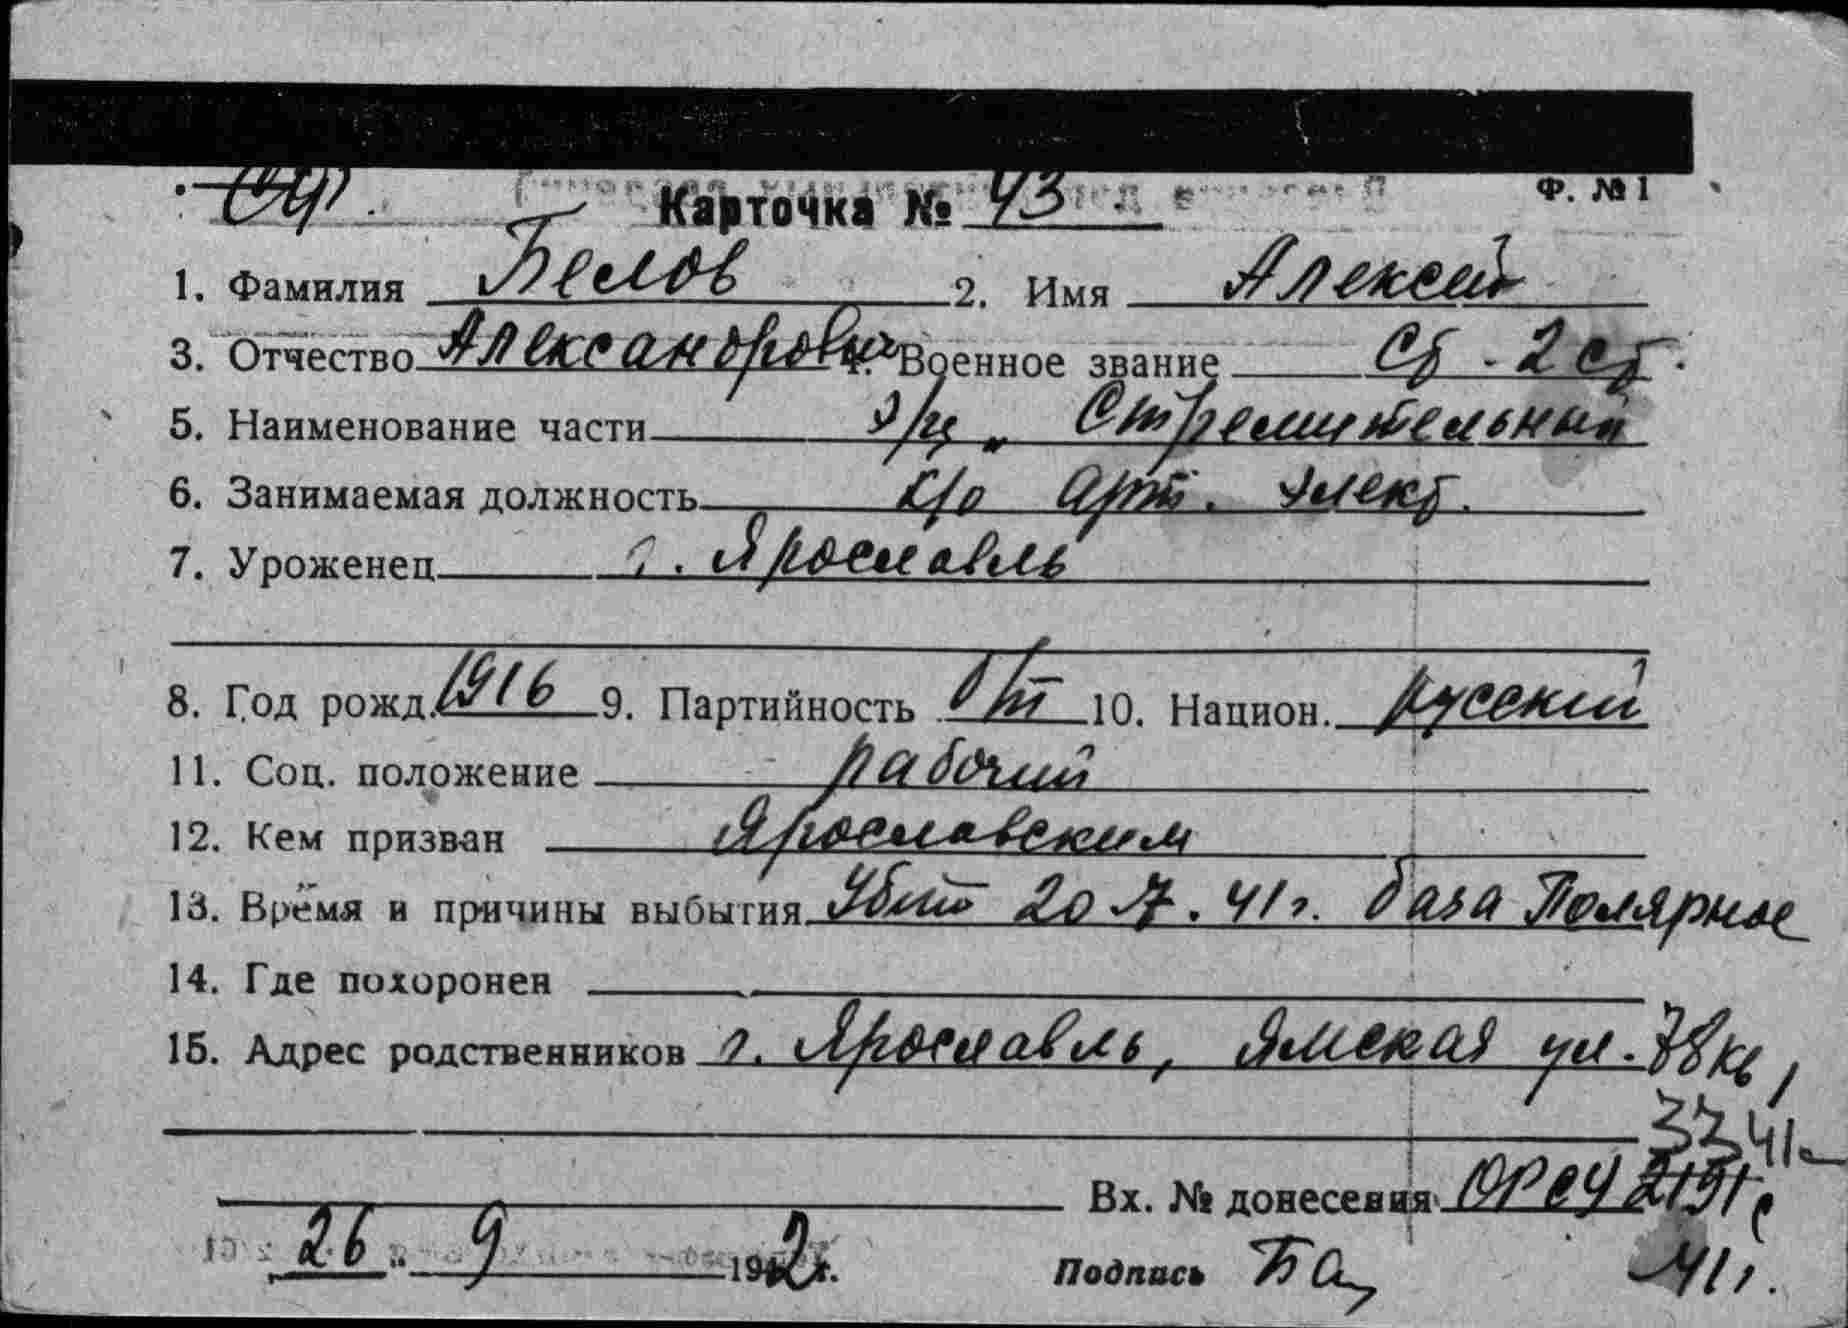 СФ. Карточка № 43 Ф. № 1
1. Фамилия Белов 2. Имя Алексей
3. Отчество Александрович 4. Военное звание Ст. 2 ст.
5. Наименование части э/м "Стремительный
6. Занимаемая должность к/о арт. элект.
7. Уроженец г. Ярославль
8. Год рожд. 1916 9. Партийность б/п 10. Национ. русский
11. Соц. положение рабочий
12. Кем призван Ярославским
13. Время и причины выбытия Убит 20.7.41г. база Полярное
14. Где похоронен
15. Адрес родственников г. Ярославль, Ямская ул.
Вх. № донесения ОРСУ
26 9 1942г. Подпись
41г.